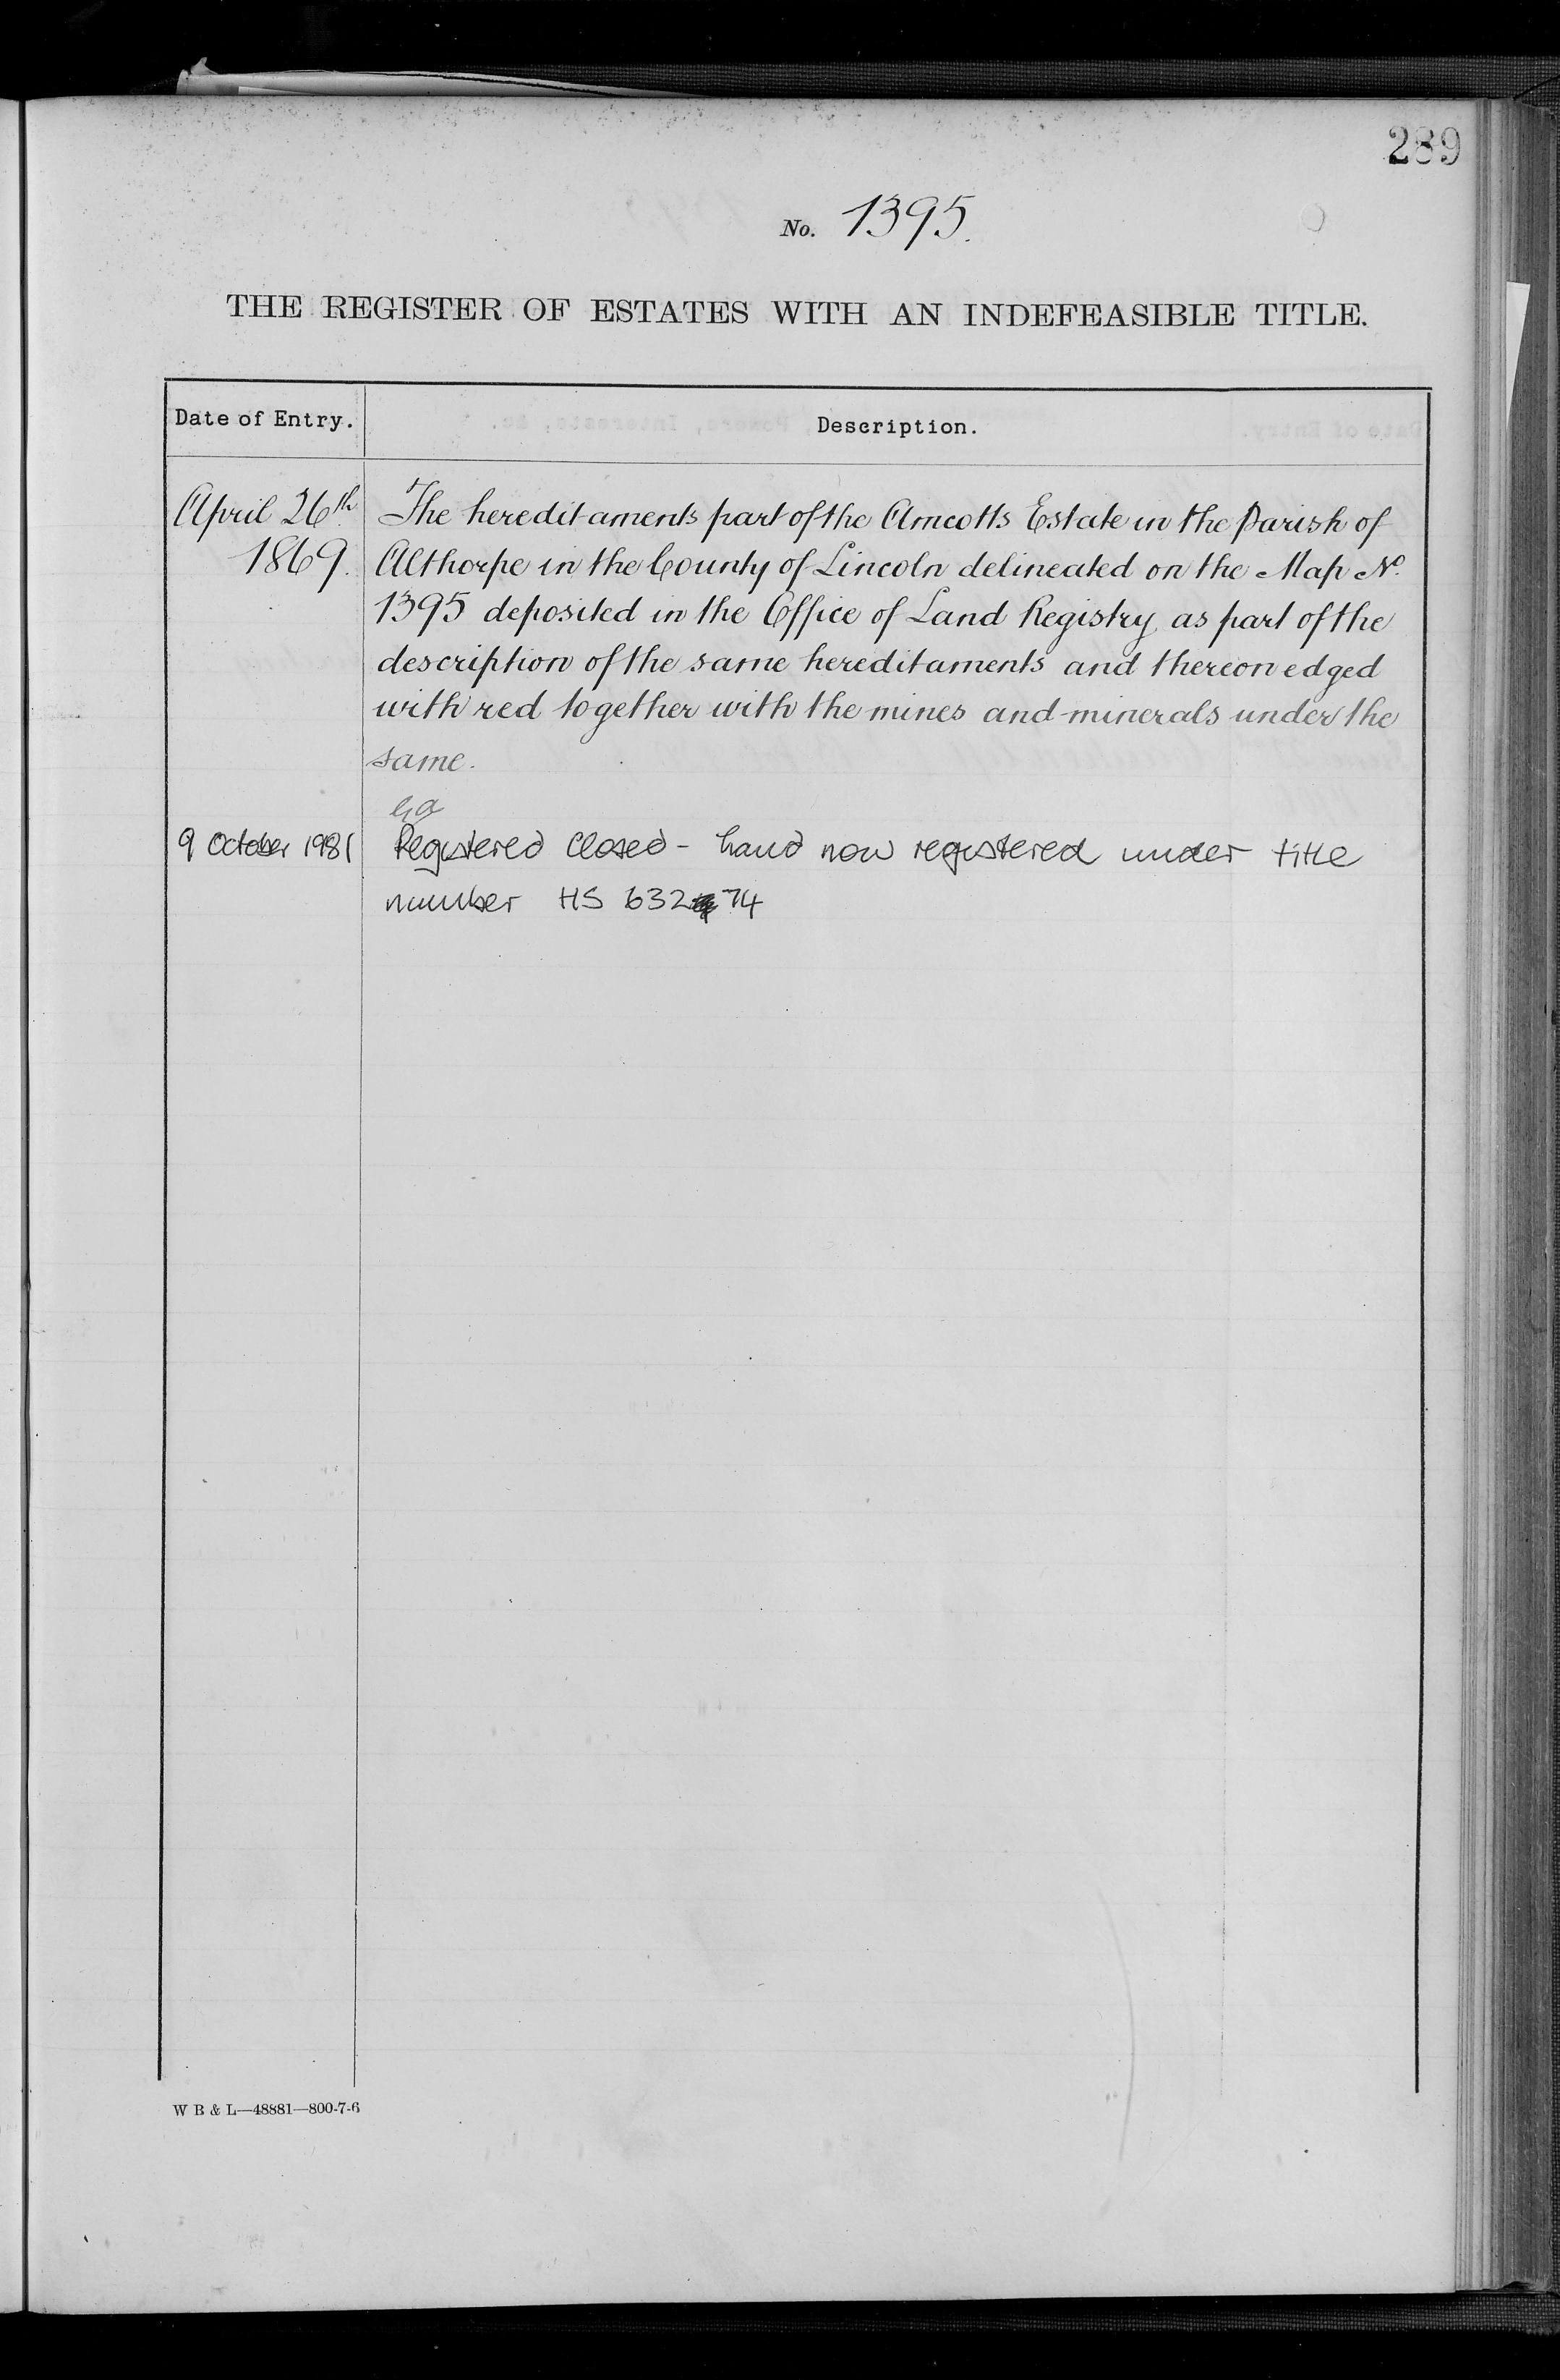 289
No. 1395.
THE REGISTER OF ESTATES WITH AN INDEFEASIBLE TITLE.
Date of Entry. Description.
April 26th The hereditaments part of the Amcotts Estate in the Parish of
1869. Althorpe in the County of Lincoln delineated on the Map No.
1395 deposited in the Office of Land Registry as part of the
description of the same hereditaments and thereon edged
with red together with the mines and minerals under the
same.
9 October 1981 Registered Closed - Land now registered under title
number HS 632 74
W B & L—48881—800-7-6